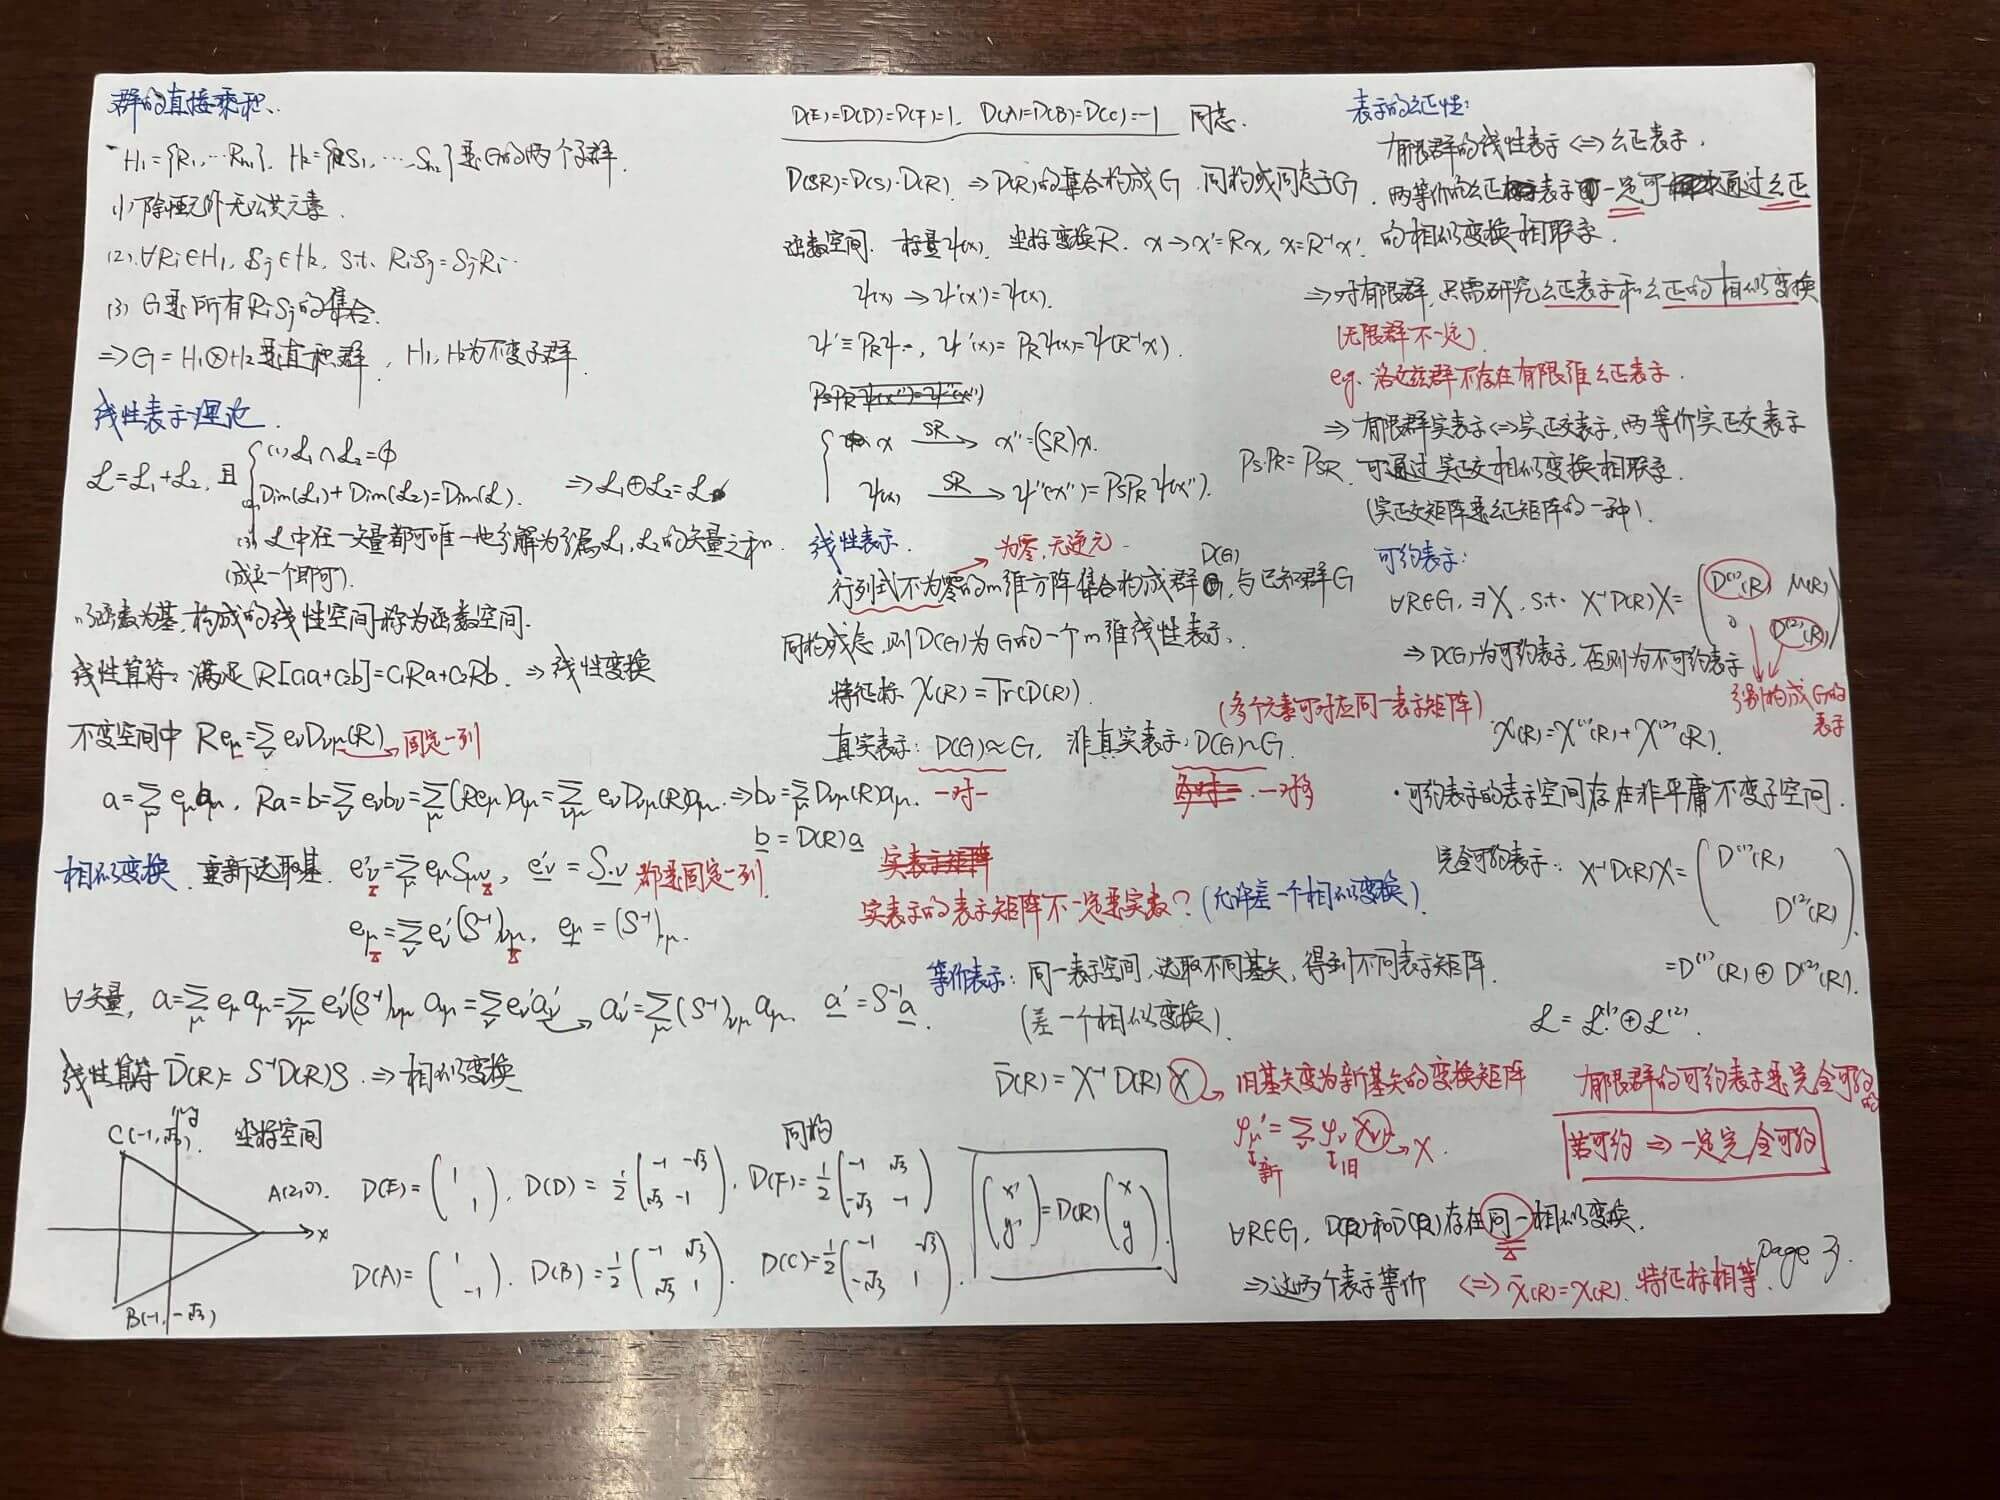 群的直接乘积、
H₁={R₁,…Rn₁}, H₂={S₁,…,Sn₂}是G的两个子群.
(1)除恒元外无公共元素.
(2).∀Ri∈H₁, Sj∈H₂, s.t. RiSj=SjRi.
(3) G是所有RiSj的集合.
⇒G=H₁⊗H₂是直积群, H₁,H₂为不变子群.
线性表示理论.
ℒ=ℒ₁+ℒ₂, 且
(1)ℒ₁∩ℒ₂=∅
(2)Dim(ℒ₁)+Dim(ℒ₂)=Dim(ℒ). ⇒ℒ₁⊕ℒ₂=ℒ
(3) ℒ中任一矢量都可唯一地分解为分属ℒ₁,ℒ₂的矢量之和.
(成立一个即可).
以函数为基,构成的线性空间称为函数空间.
线性算符: 满足R[c₁a+c₂b]=c₁Ra+c₂Rb. ⇒线性变换
不变空间中 Reμ=∑ν eνDνμ(R)→固定一列
a=∑μ eμaμ, Ra=b=∑ν eνbν=∑μ(Reμ)aμ=∑νμ eνDνμ(R)aμ.⇒bν=∑μ Dνμ(R)aμ.
b=D(R)a
相似变换. 重新选取基. e′ν=∑μ eμSμν, e′ν=S·ν 都是固定一列.
eμ=∑ν e′ν(S⁻¹)νμ, eμ=(S⁻¹)·μ.
∀矢量, a=∑μ eμaμ=∑νμ e′ν(S⁻¹)νμ aμ=∑ν e′νa′ν→a′ν=∑μ(S⁻¹)νμ aμ. a′=S⁻¹a.
线性算符 D̄(R)=S⁻¹D(R)S. ⇒相似变换
y
C(-1,√3). 坐标空间 同构
A(2,0). D(E)=(1 ; 1), D(D)=½(-1 -√3 ; √3 -1), D(F)=½(-1 √3 ; -√3 -1)
x
D(A)=(1 ; -1). D(B)=½(-1 √3 ; √3 1). D(C)=½(-1 -√3 ; -√3 1).
B(-1,-√3)
(x′ ; y′)=D(R)(x ; y).
D(E)=D(D)=D(F)=1. D(A)=D(B)=D(C)=-1 同态.
D(SR)=D(S)·D(R) ⇒D(R)的集合构成G 同构或同态于G.
函数空间. 标量ψ(x), 坐标变换R. x→x′=Rx, x=R⁻¹x′.
ψ(x)→ψ′(x′)=ψ(x).
ψ′≡P_Rψ, ψ′(x)=P_Rψ(x)=ψ(R⁻¹x).
PsP_R ψ(x″)=ψ″(x″)
x —SR→ x″=(SR)x.
ψ(x) —SR→ ψ″(x″)=PsP_Rψ(x″). Ps·P_R=P_SR.
线性表示. 为零,无逆元
D(G)
行列式不为零的m维方阵集合构成群, 与已知群G
同构或态, 则D(G)为G的一个m维线性表示.
特征标 χ(R)=Tr(D(R)).
(多个元素可对应同一表示矩阵)
真实表示: D(G)≈G, 非真实表示: D(G)~G.
一对一 一对多
实表示矩阵
实表示的表示矩阵不一定是实数? (允许差一个相似变换).
等价表示: 同一表示空间,选取不同基矢,得到不同表示矩阵.
(差一个相似变换).
D̄(R)=X⁻¹D(R)X→旧基矢变为新基矢的变换矩阵
φ′μ=∑ν φν Xνμ→X.
新 旧
∀R∈G, D(R)和D̄(R)存在同一相似变换.
⇒这两个表示等价 ⇔χ̄(R)=χ(R). 特征标相等.
表示的幺正性:
有限群的线性表示⇔幺正表示.
两等价的幺正表示一定可通过幺正
的相似变换相联系.
⇒对有限群,只需研究幺正表示和幺正的相似变换
(无限群不一定).
eg. 洛伦兹群不存在有限维幺正表示.
⇒有限群实表示⇔实正交表示,两等价实正交表示
可通过实正交相似变换相联系.
(实正交矩阵是幺正矩阵的一种).
可约表示:
∀R∈G, ∃X, s.t. X⁻¹D(R)X=(D⁽¹⁾(R) M(R) ; 0 D⁽²⁾(R))
⇒D(G)为可约表示,否则为不可约表示
分别构成G的表示
χ(R)=χ⁽¹⁾(R)+χ⁽²⁾(R).
·可约表示的表示空间存在非平庸不变子空间.
完全可约表示: X⁻¹D(R)X=(D⁽¹⁾(R) ; D⁽²⁾(R)).
=D⁽¹⁾(R)⊕D⁽²⁾(R).
ℒ=ℒ⁽¹⁾⊕ℒ⁽²⁾.
有限群的可约表示是完全可约的
若可约⇒一定完全可约
page 3.